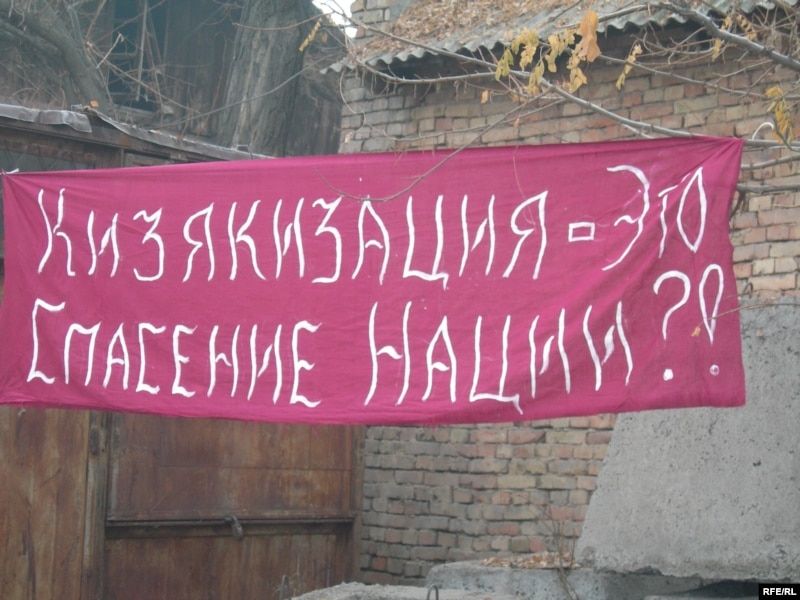 Кизякизация - Это
Спасение Нации?!
RFE/RL